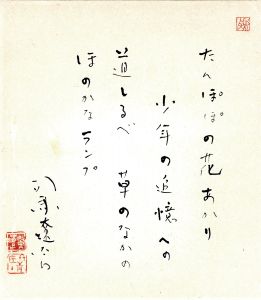 たんぽぽの花あかり
少年の追憶への
道しるべ 草のなかの
ほのかなランプ